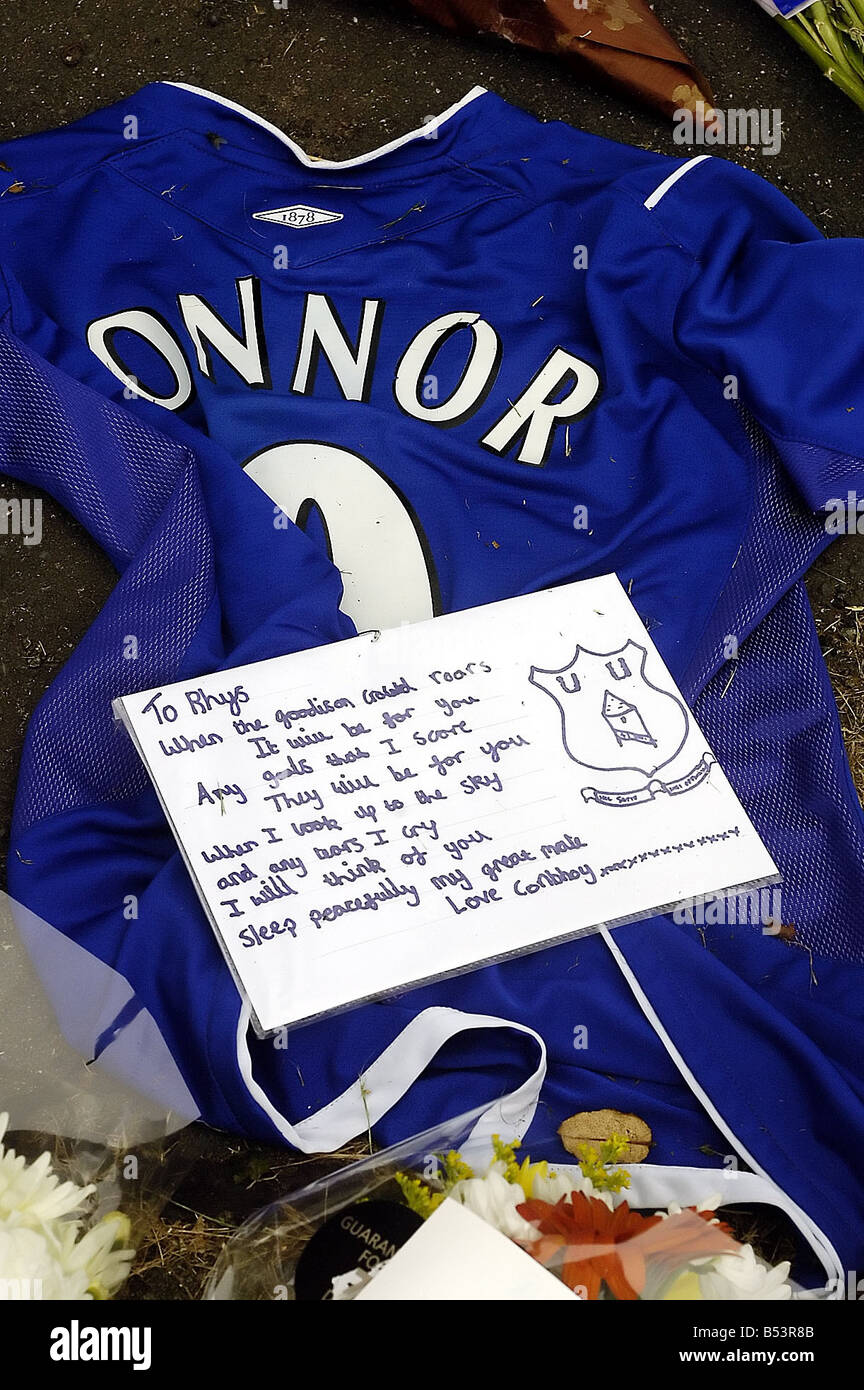 1878
ONNOR
To Rhys
When the goodison crowd roars
It will be for you
Any goals that I score
They will be for you
When I look up to the sky
and any tears I cry
I will think of you
sleep peacefully my great mate
Love Conbhoy xxxxxxxxxxxxx
GUARAN
FO
alamy
Image ID: B53R8B
www.alamy.com